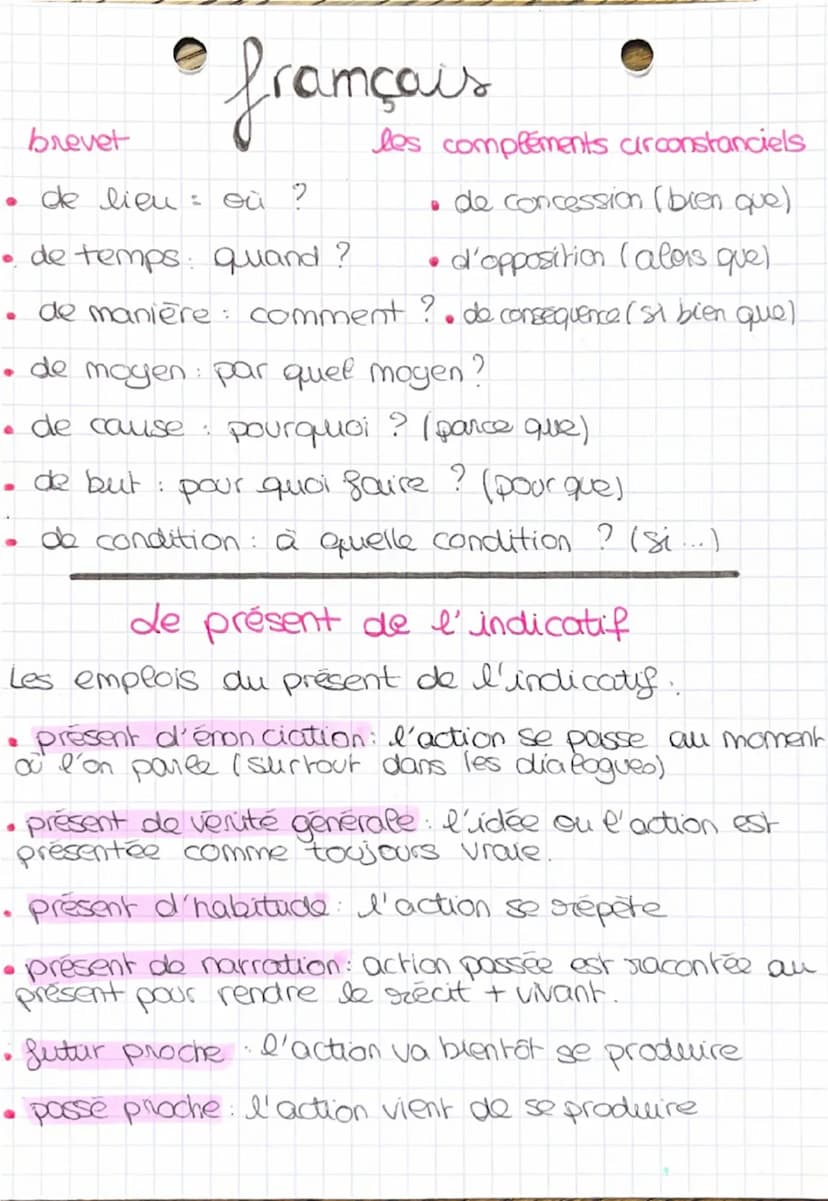 français
brevet
les compléments circonstanciels
• de lieu : où ?
• de concession (bien que)
• de temps : quand ?
• d'opposition (alors que)
• de manière : comment ?
• de conséquence (si bien que)
• de moyen : par quel moyen ?
• de cause : pourquoi ? (parce que)
• de but : pour quoi faire ? (pour que)
• de condition : à quelle condition ? (si ...)
le présent de l'indicatif
Les emplois du présent de l'indicatif :
• présent d'énonciation : l'action se passe au moment
où l'on parle (surtout dans les dialogues)
• présent de vérité générale : l'idée ou l'action est
présentée comme toujours vraie.
• présent d'habitude : l'action se répète
• présent de narration : action passée est racontée au
présent pour rendre le récit + vivant.
• futur proche : l'action va bientôt se produire
• passé proche : l'action vient de se produire